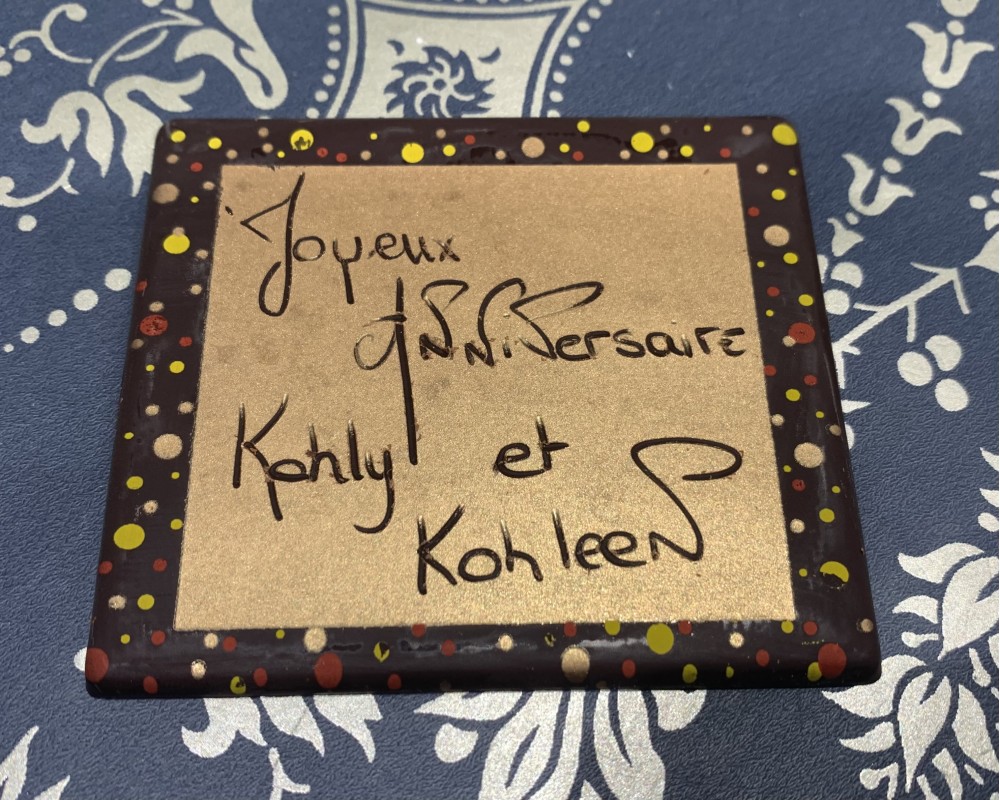 Joyeux
Anniversaire
Kohly et
Kohleen